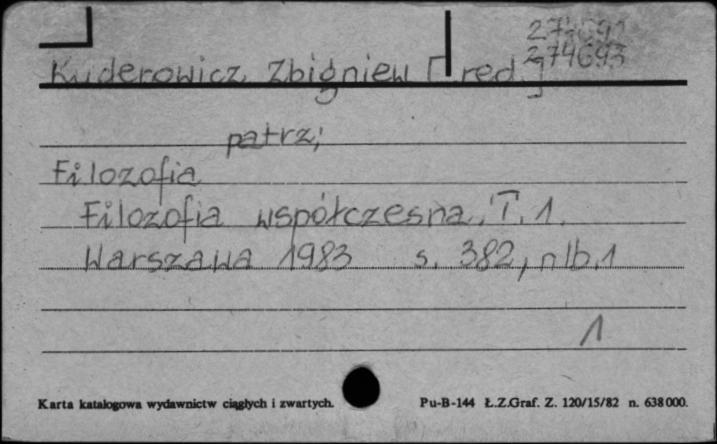 274691
274693
Kuderowicz Zbigniew [red.]
patrz;
Filozofia
Filozofia współczesna. T. 1.
Warszawa 1983 s. 382, nlb. 1
1
Karta katalogowa wydawnictw ciągłych i zwartych. Pu-B-144 Ł.Z.Graf. Z. 120/15/82 n. 638 000.